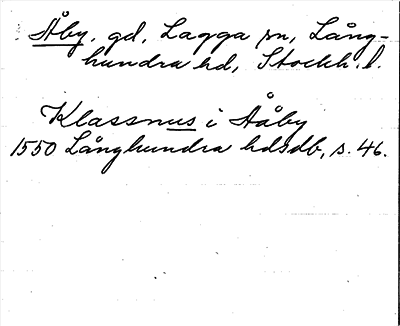 Åby, gd, Lagga sn, Lång-
hundra hd, Stockh. l.
Klassnus i Aåby
1550 Långhundra hdsdb, s. 46.